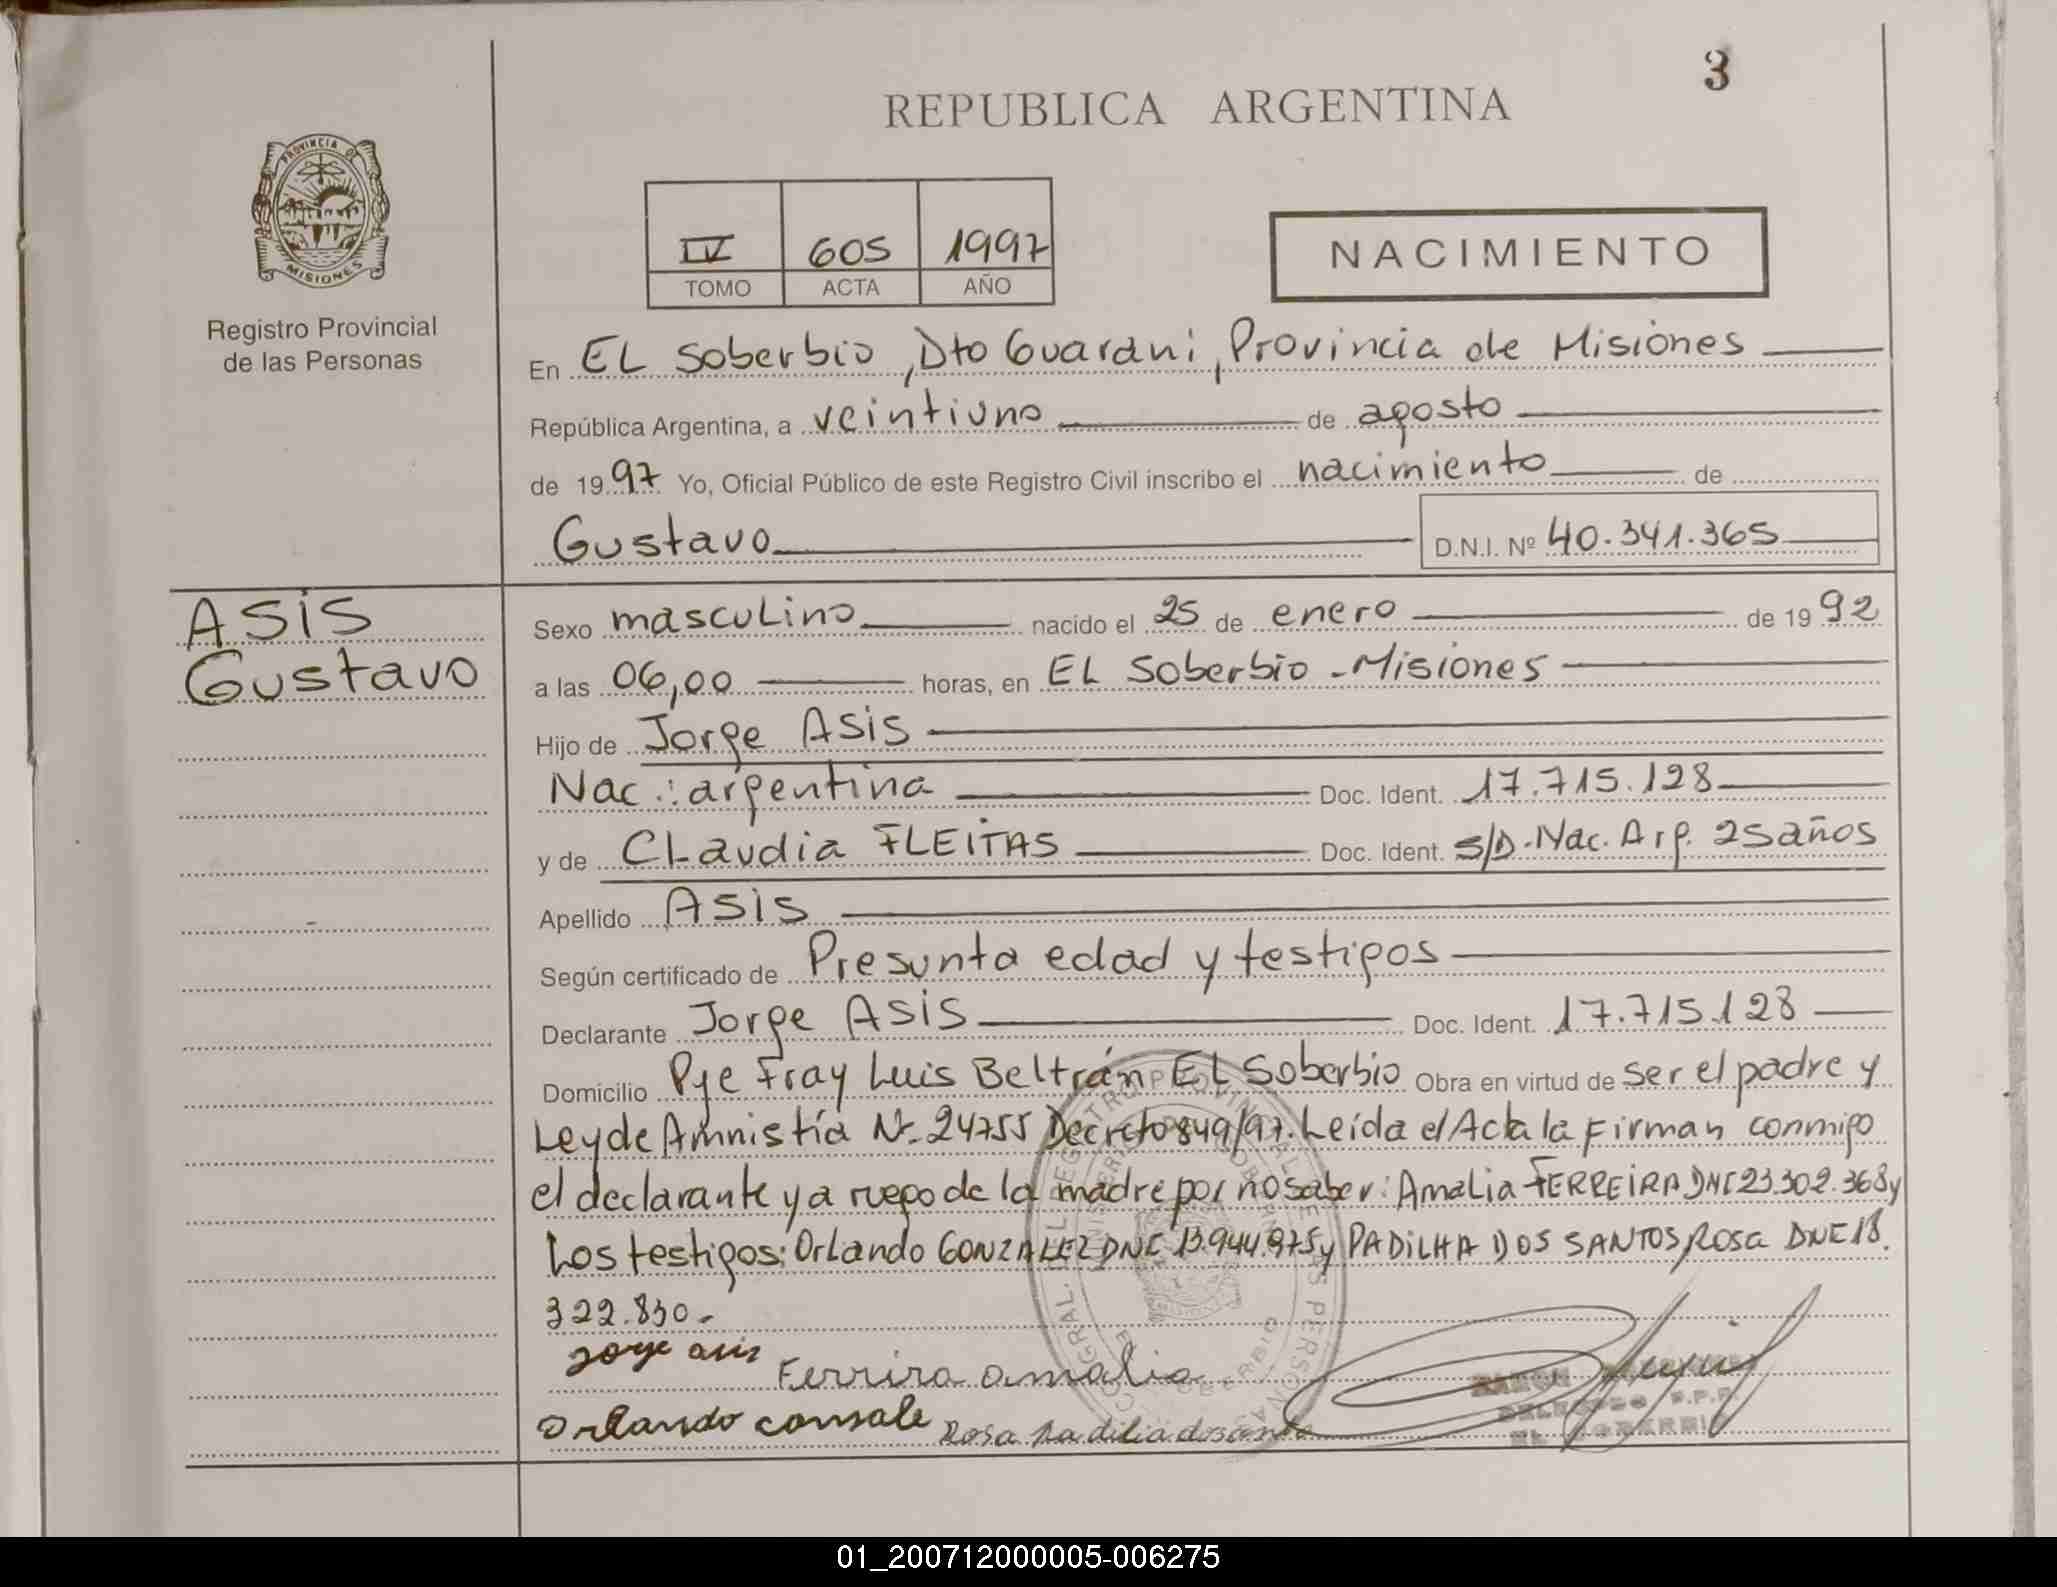 3
REPUBLICA ARGENTINA
PROVINCIA DE
MISIONES
Registro Provincial
de las Personas
IV 605 1997
TOMO ACTA AÑO
NACIMIENTO
En EL Soberbio, Dto Guarani, Provincia de Misiones
República Argentina, a veintiuno de agosto
de 1997 Yo, Oficial Público de este Registro Civil inscribo el nacimiento de
Gustavo D.N.I. Nº 40.341.365
ASIS
Gustavo
Sexo masculino nacido el 25 de enero de 1992
a las 06,00 horas, en EL Soberbio - Misiones
Hijo de Jorge ASIS
Nac.: argentina Doc. Ident. 17.715.128
y de CLaudia FLEITAS Doc. Ident. S/D. Nac. Arg. 25 años
Apellido ASIS
Según certificado de Presunta edad y testigos
Declarante Jorge ASIS Doc. Ident. 17.715.128
Domicilio Pje Fray Luis Beltrán EL Soberbio Obra en virtud de ser el padre y
Ley de Amnistía Nº 24755 Decreto 849/97. Leída el Acta la Firman conmigo
el declarante y a ruego de la madre por no saber: Amalia FERREIRA DNI 23.302.368 y
Los testigos: Orlando GONZALEZ DNI 13.944.975 y PADILHA DOS SANTOS, Rosa DNE 18.
322.830.-
Jorge asis Ferrira amalia
Orlando consale Rosa Padilia dosanto
EL SOBERBIO
01_200712000005-006275